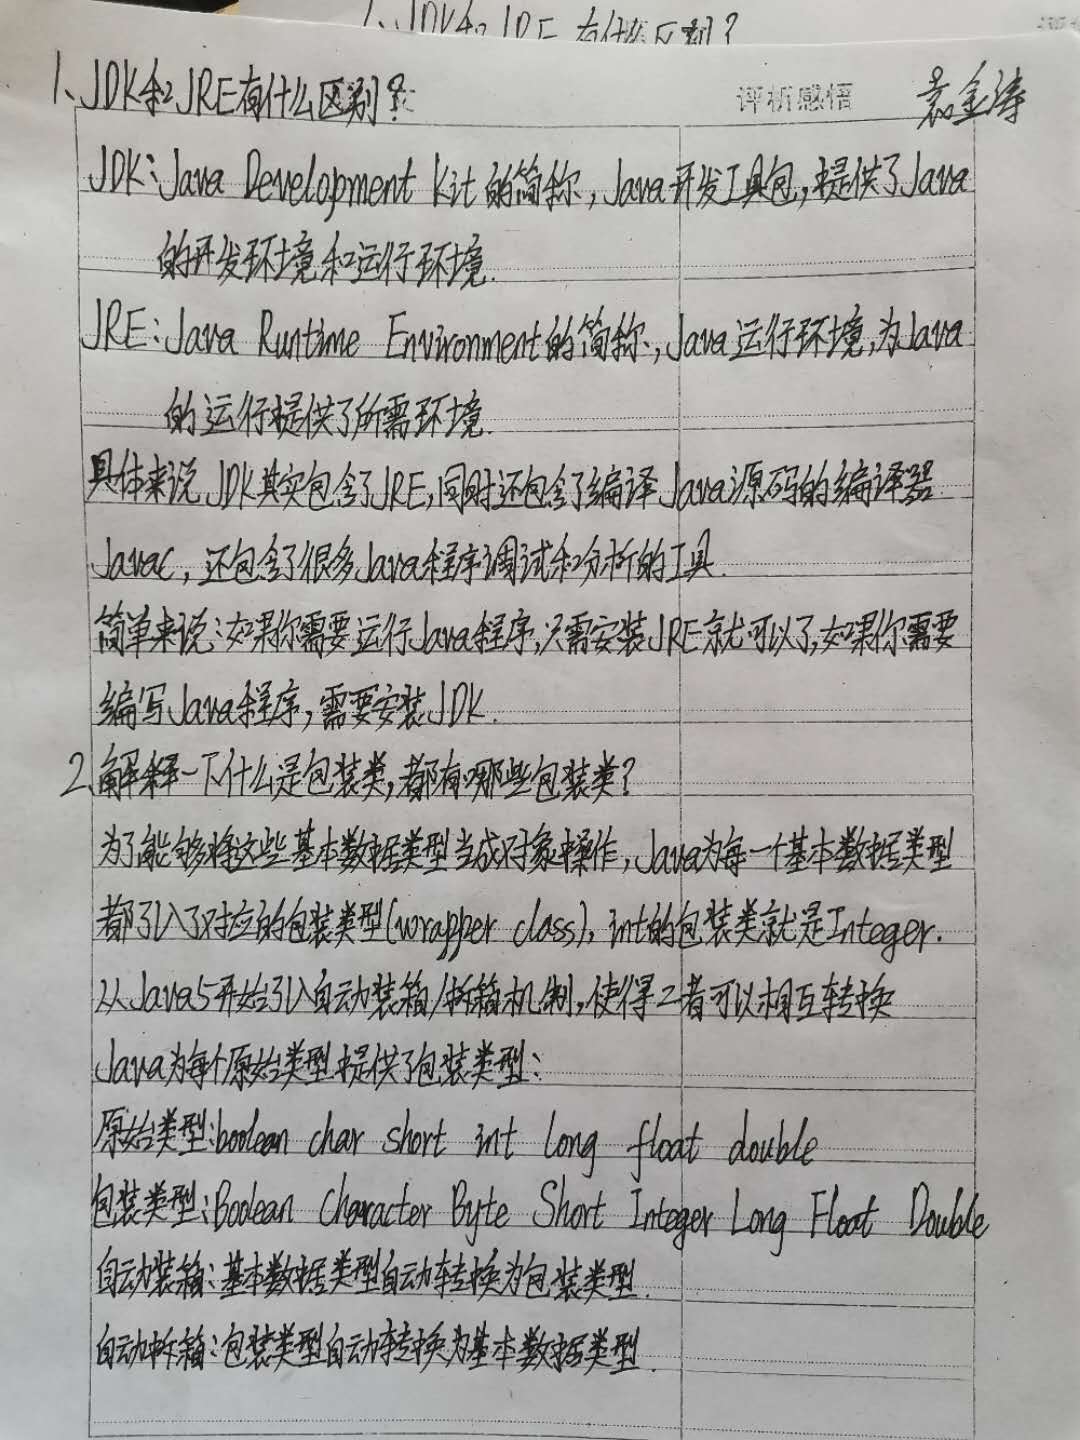 1、JDK和JRE有什么区别?
1、JDK和JRE有什么区别?
评析感悟
袁金涛
JDK:Java Development Kit的简称,Java开发工具包,提供了Java
的开发环境和运行环境.
JRE:Java Runtime Environment的简称,Java运行环境,为Java
的运行提供了所需环境.
具体来说,JDK其实包含了JRE,同时还包含了编译Java源码的编译器
Javac,还包含了很多Java程序调试和分析的工具.
简单来说:如果你需要运行Java程序,只需安装JRE就可以了,如果你需要
编写Java程序,需要安装JDK.
2、解释一下什么是包装类,都有哪些包装类?
为了能够将这些基本数据类型当成对象操作,Java为每一个基本数据类型
都引入了对应的包装类型(wrapper class),int的包装类就是Integer.
从Java5开始引入自动装箱/拆箱机制,使得二者可以相互转换
Java为每个原始类型提供了包装类型:
原始类型:boolean char short int long float double
包装类型:Boolean Character Byte Short Integer Long Float Double
自动装箱:基本数据类型自动转换为包装类型.
自动拆箱:包装类型自动转换为基本数据类型.